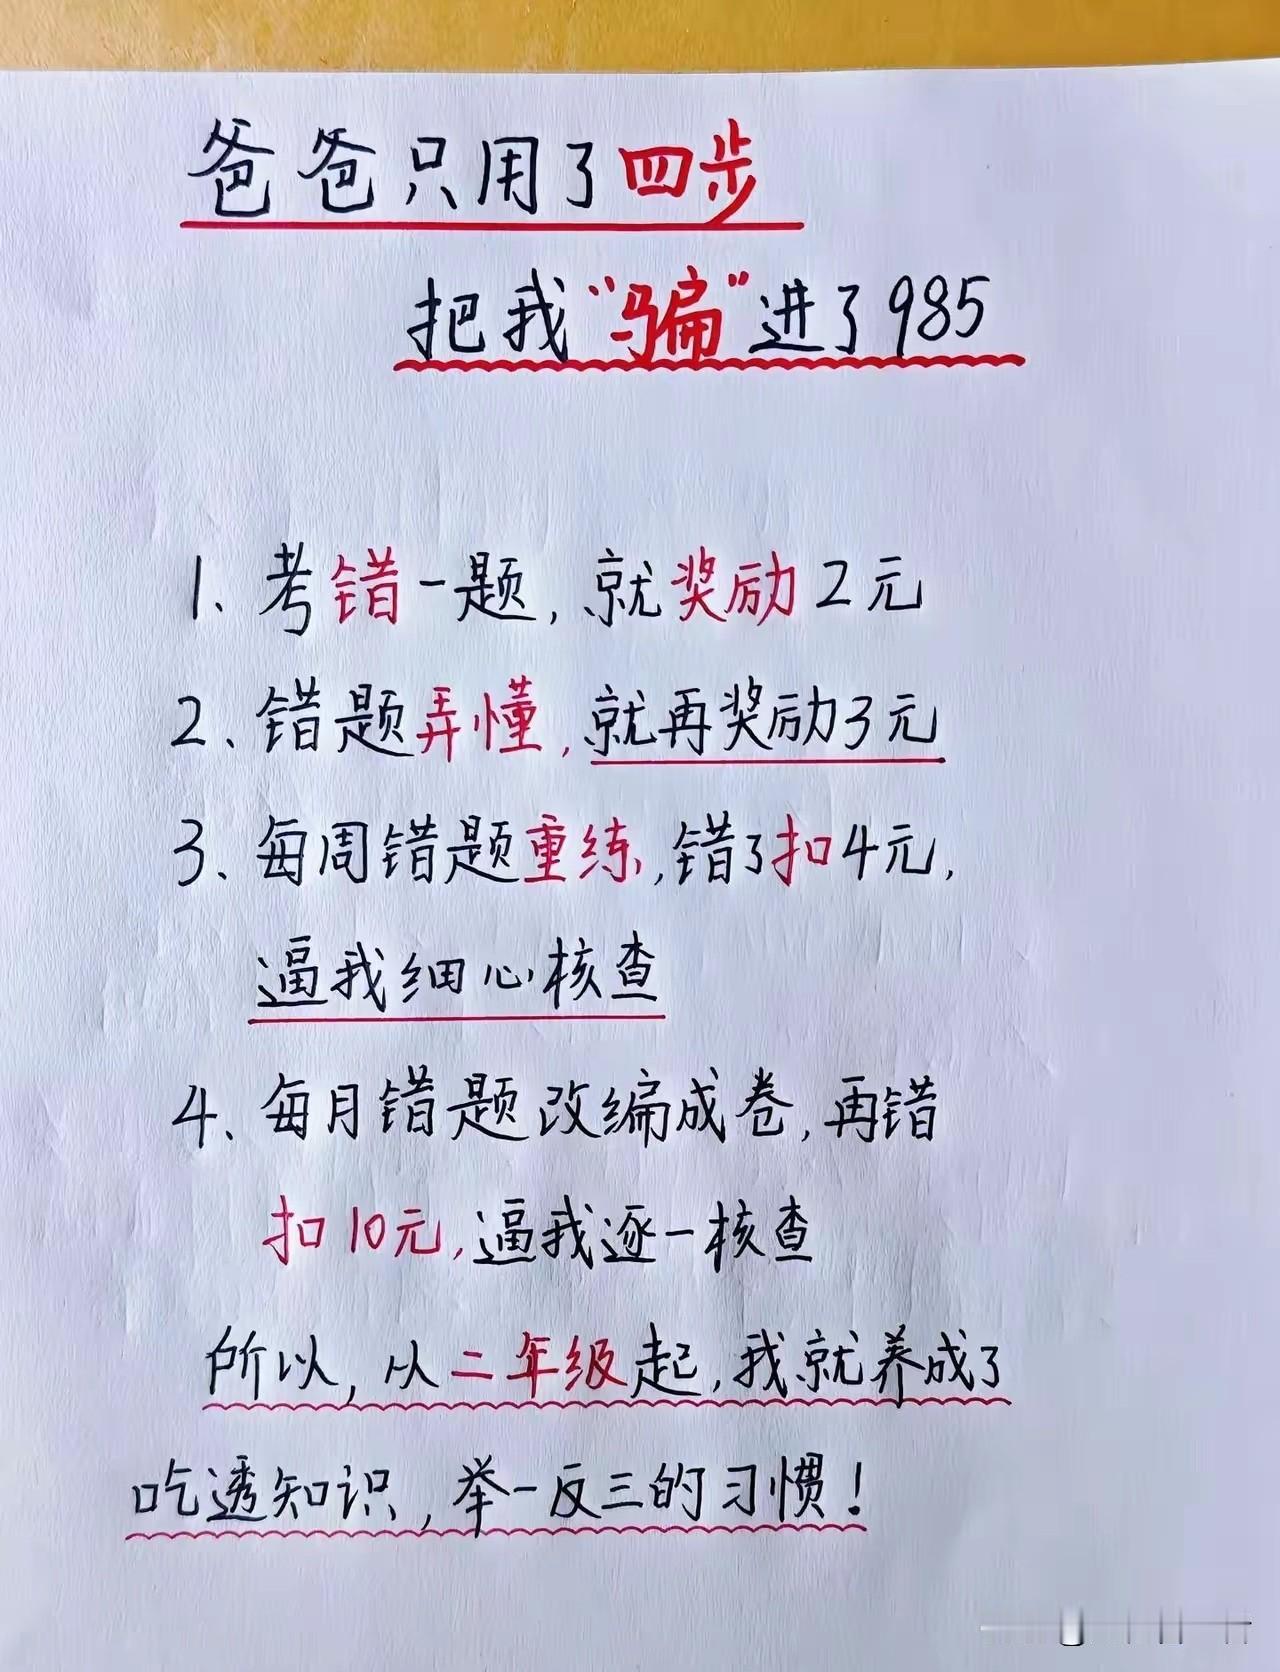 爸爸只用了四步
把我“骗”进了985
1、考错一题，就奖励2元
2、错题弄懂，就再奖励3元
3、每周错题重练，错了扣4元，
逼我细心核查
4、每月错题改编成卷，再错
扣10元，逼我逐一核查
所以，从二年级起，我就养成了
吃透知识，举一反三的习惯！